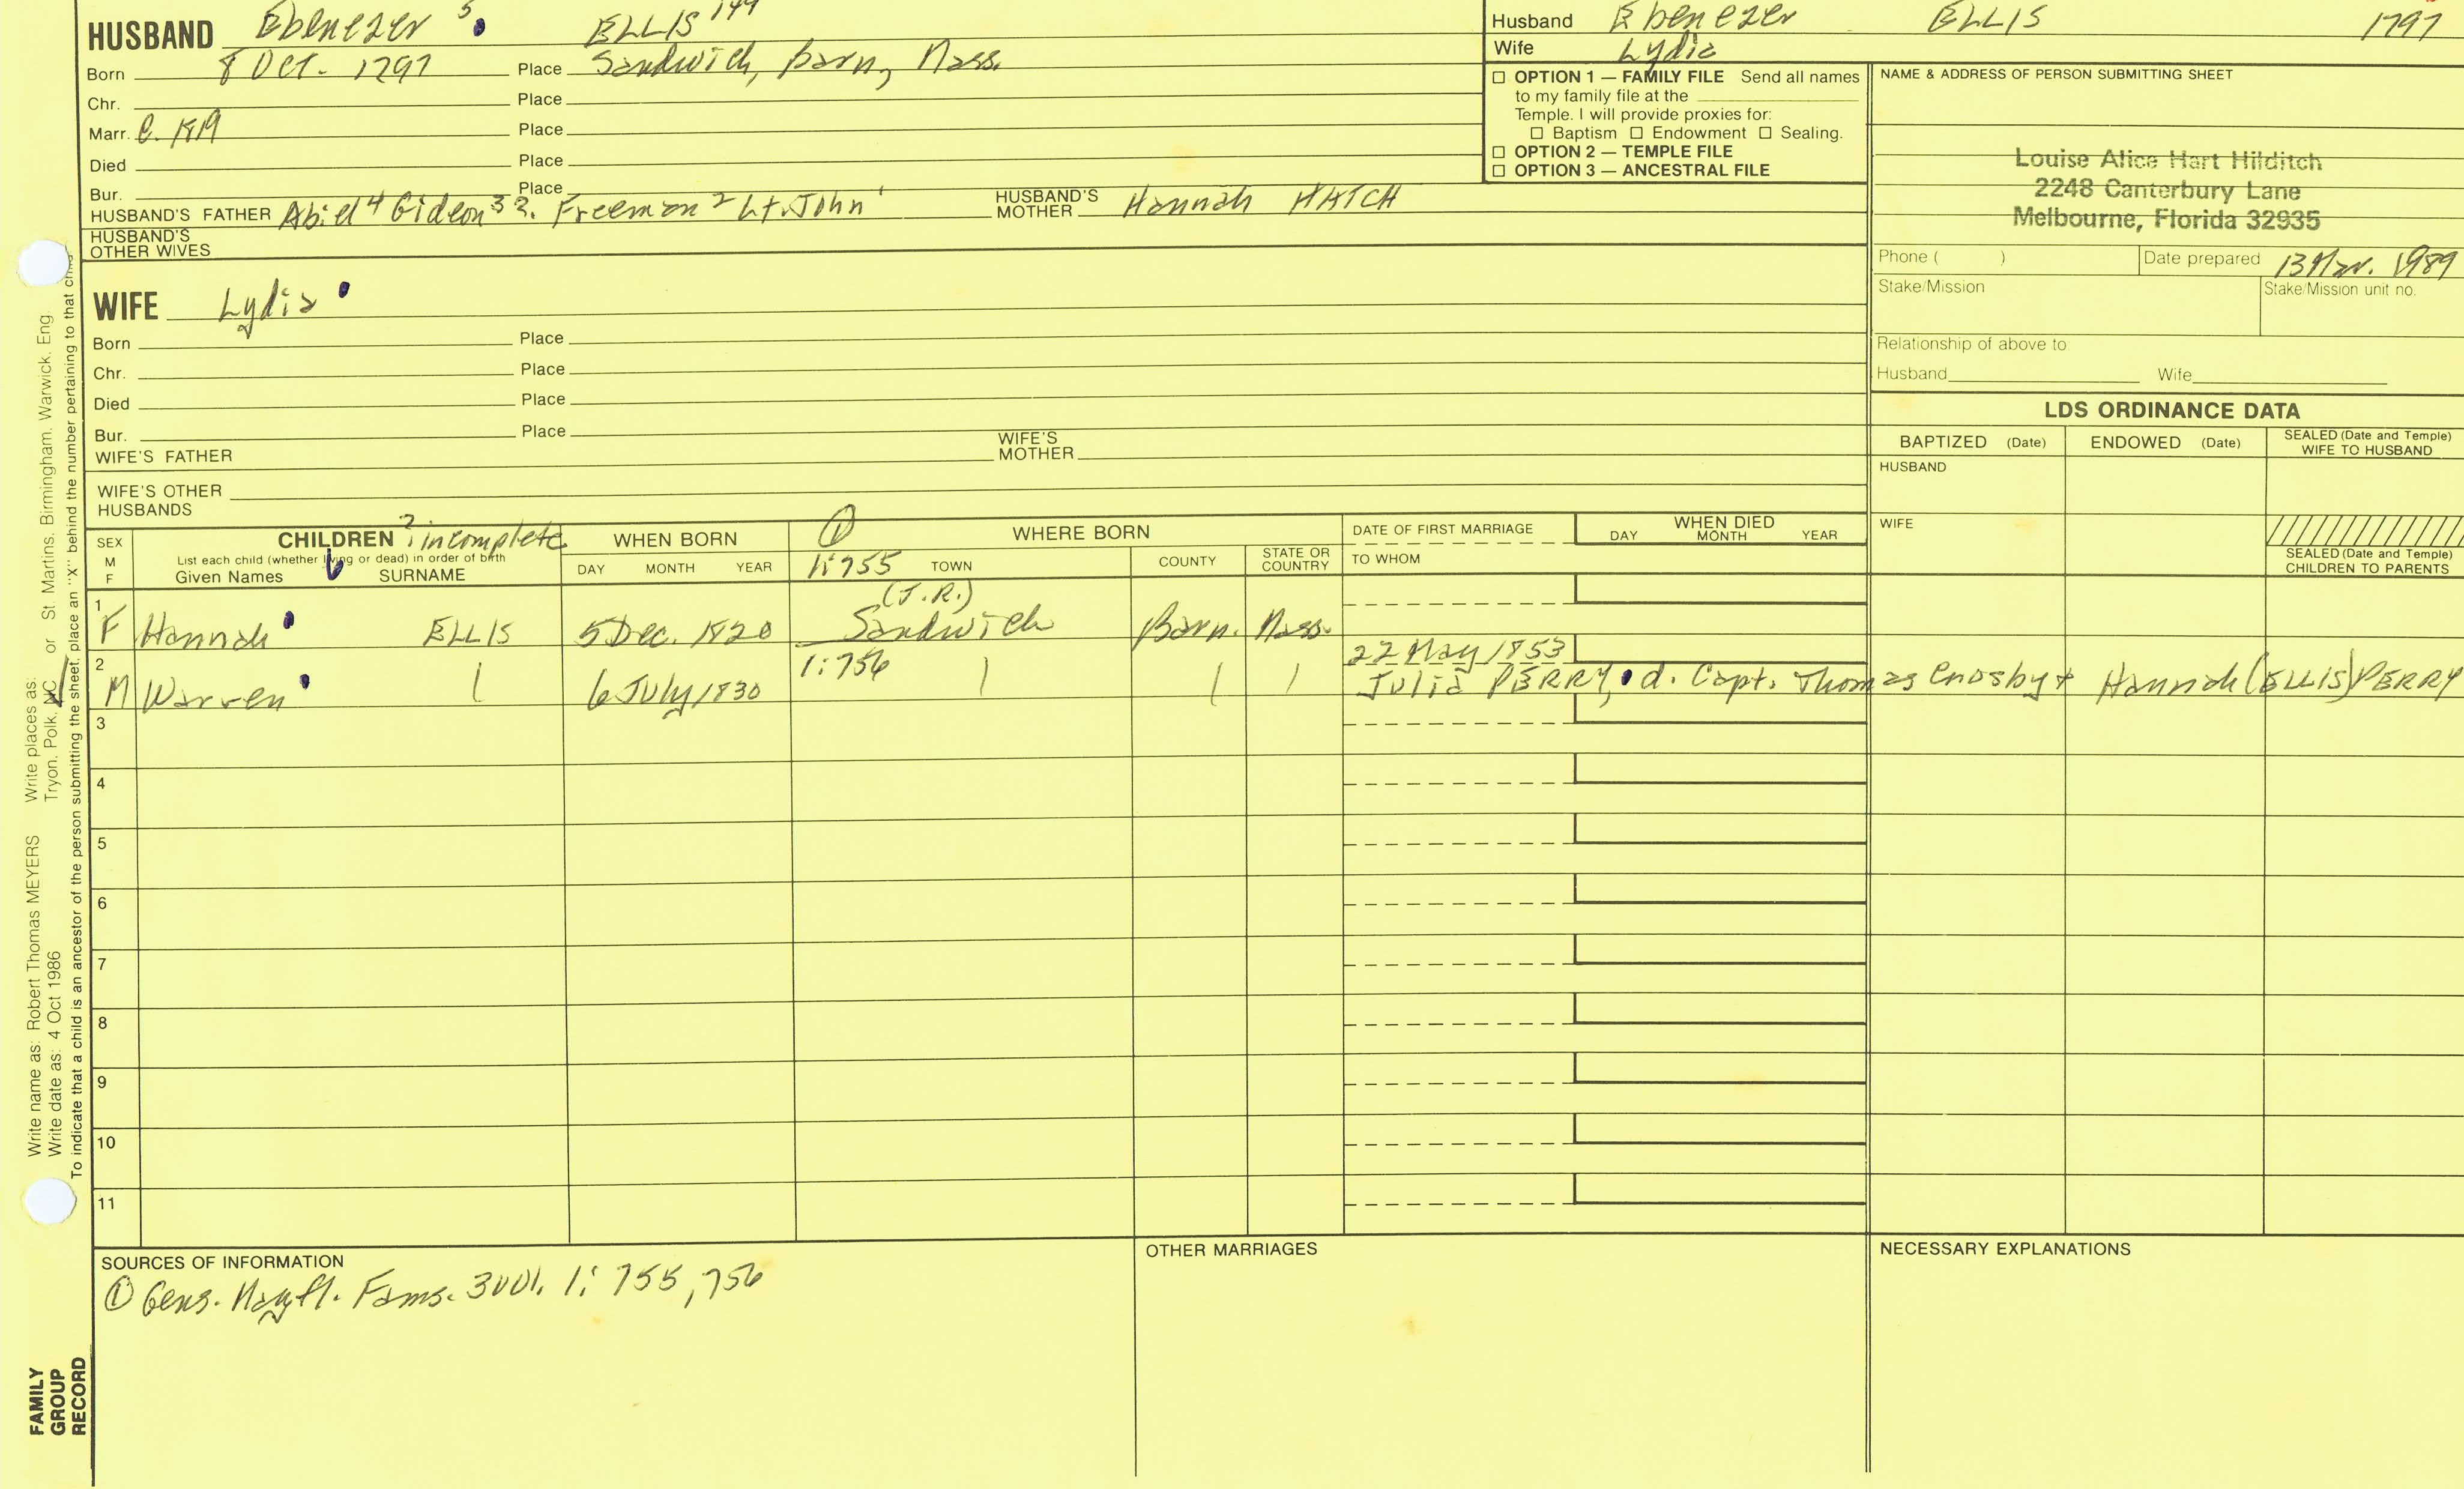 HUSBAND Ebenezer 5 ELLIS 144
Born 8 Oct. 1797 Place Sandwich, Barn, Mass.
Chr. Place
Marr. C. 1819 Place
Died Place
Bur. Place
HUSBAND'S FATHER Abiel 4 Gideon 3 2. Freeman 2 Lt. John 1 HUSBAND'S MOTHER Hannah HATCH
HUSBAND'S OTHER WIVES
Husband Ebenezer ELLIS 1797
Wife Lydia
☐ OPTION 1 — FAMILY FILE Send all names
to my family file at the
Temple. I will provide proxies for:
☐ Baptism ☐ Endowment ☐ Sealing.
☐ OPTION 2 — TEMPLE FILE
☐ OPTION 3 — ANCESTRAL FILE
NAME & ADDRESS OF PERSON SUBMITTING SHEET
Louise Alice Hart Hilditch
2248 Canterbury Lane
Melbourne, Florida 32935
Phone ( ) Date prepared 13 Mar. 1989
Stake/Mission Stake/Mission unit no.
Relationship of above to
Husband Wife
WIFE Lydia
Born Place
Chr. Place
Died Place
Bur. Place
WIFE'S FATHER WIFE'S MOTHER
WIFE'S OTHER HUSBANDS
LDS ORDINANCE DATA
BAPTIZED (Date) ENDOWED (Date) SEALED (Date and Temple) WIFE TO HUSBAND
HUSBAND
WIFE
SEALED (Date and Temple)
CHILDREN TO PARENTS
SEX
M
F
CHILDREN ? incomplete
List each child (whether living or dead) in order of birth
Given Names SURNAME
WHEN BORN
DAY MONTH YEAR
① WHERE BORN
1:755 TOWN COUNTY STATE OR COUNTRY
DATE OF FIRST MARRIAGE
TO WHOM
WHEN DIED
DAY MONTH YEAR
(J.R.)
1 F Hannah ELLIS 5 Dec. 1820 Sandwich Barn. Mass.
22 May 1853
2 M Warren 6 July 1830 1:756 Julia PERRY, d. Capt. Thomas Crosby + Hannah (ELLIS) PERRY
3
4
5
6
7
8
9
10
11
SOURCES OF INFORMATION
① Gens. Mayfl. Fams. 3 vol. 1: 755, 756
OTHER MARRIAGES
NECESSARY EXPLANATIONS
Write name as: Robert Thomas MEYERS Write places as:
Write date as: 4 Oct 1986 Tryon, Polk, NC or St Martins, Birmingham, Warwick, Eng.
To indicate that a child is an ancestor of the person submitting the sheet, place an "X" behind the number pertaining to that child
FAMILY
GROUP
RECORD